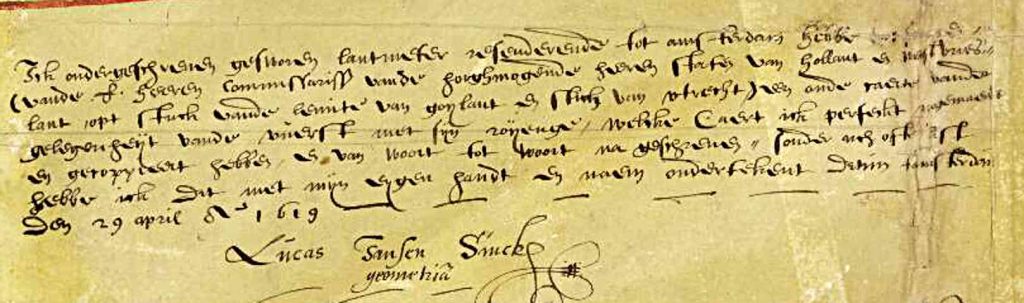 Ick ondergeschreven gesworen lantmeter resenderende tot amsterdam hebbe
(vande E. heeren Commissariss vande hooghmogende heeren staten van hollant en west vries
lant opt stuck vande lemite van goylant en sticht van utrecht) een oude caerte vande
gelegenheyt vande vuersk met syn royenge, welcke Caert ick perfeckt nagemaeckt
en gecopyeert hebben, en van woort tot woort na geschreven, sonder
hebbe ick dit met myn eygen handt en naem ondertekent datum tamsterdam
den 29 april A° 1619
Lucas Jansen Sinck
geometria